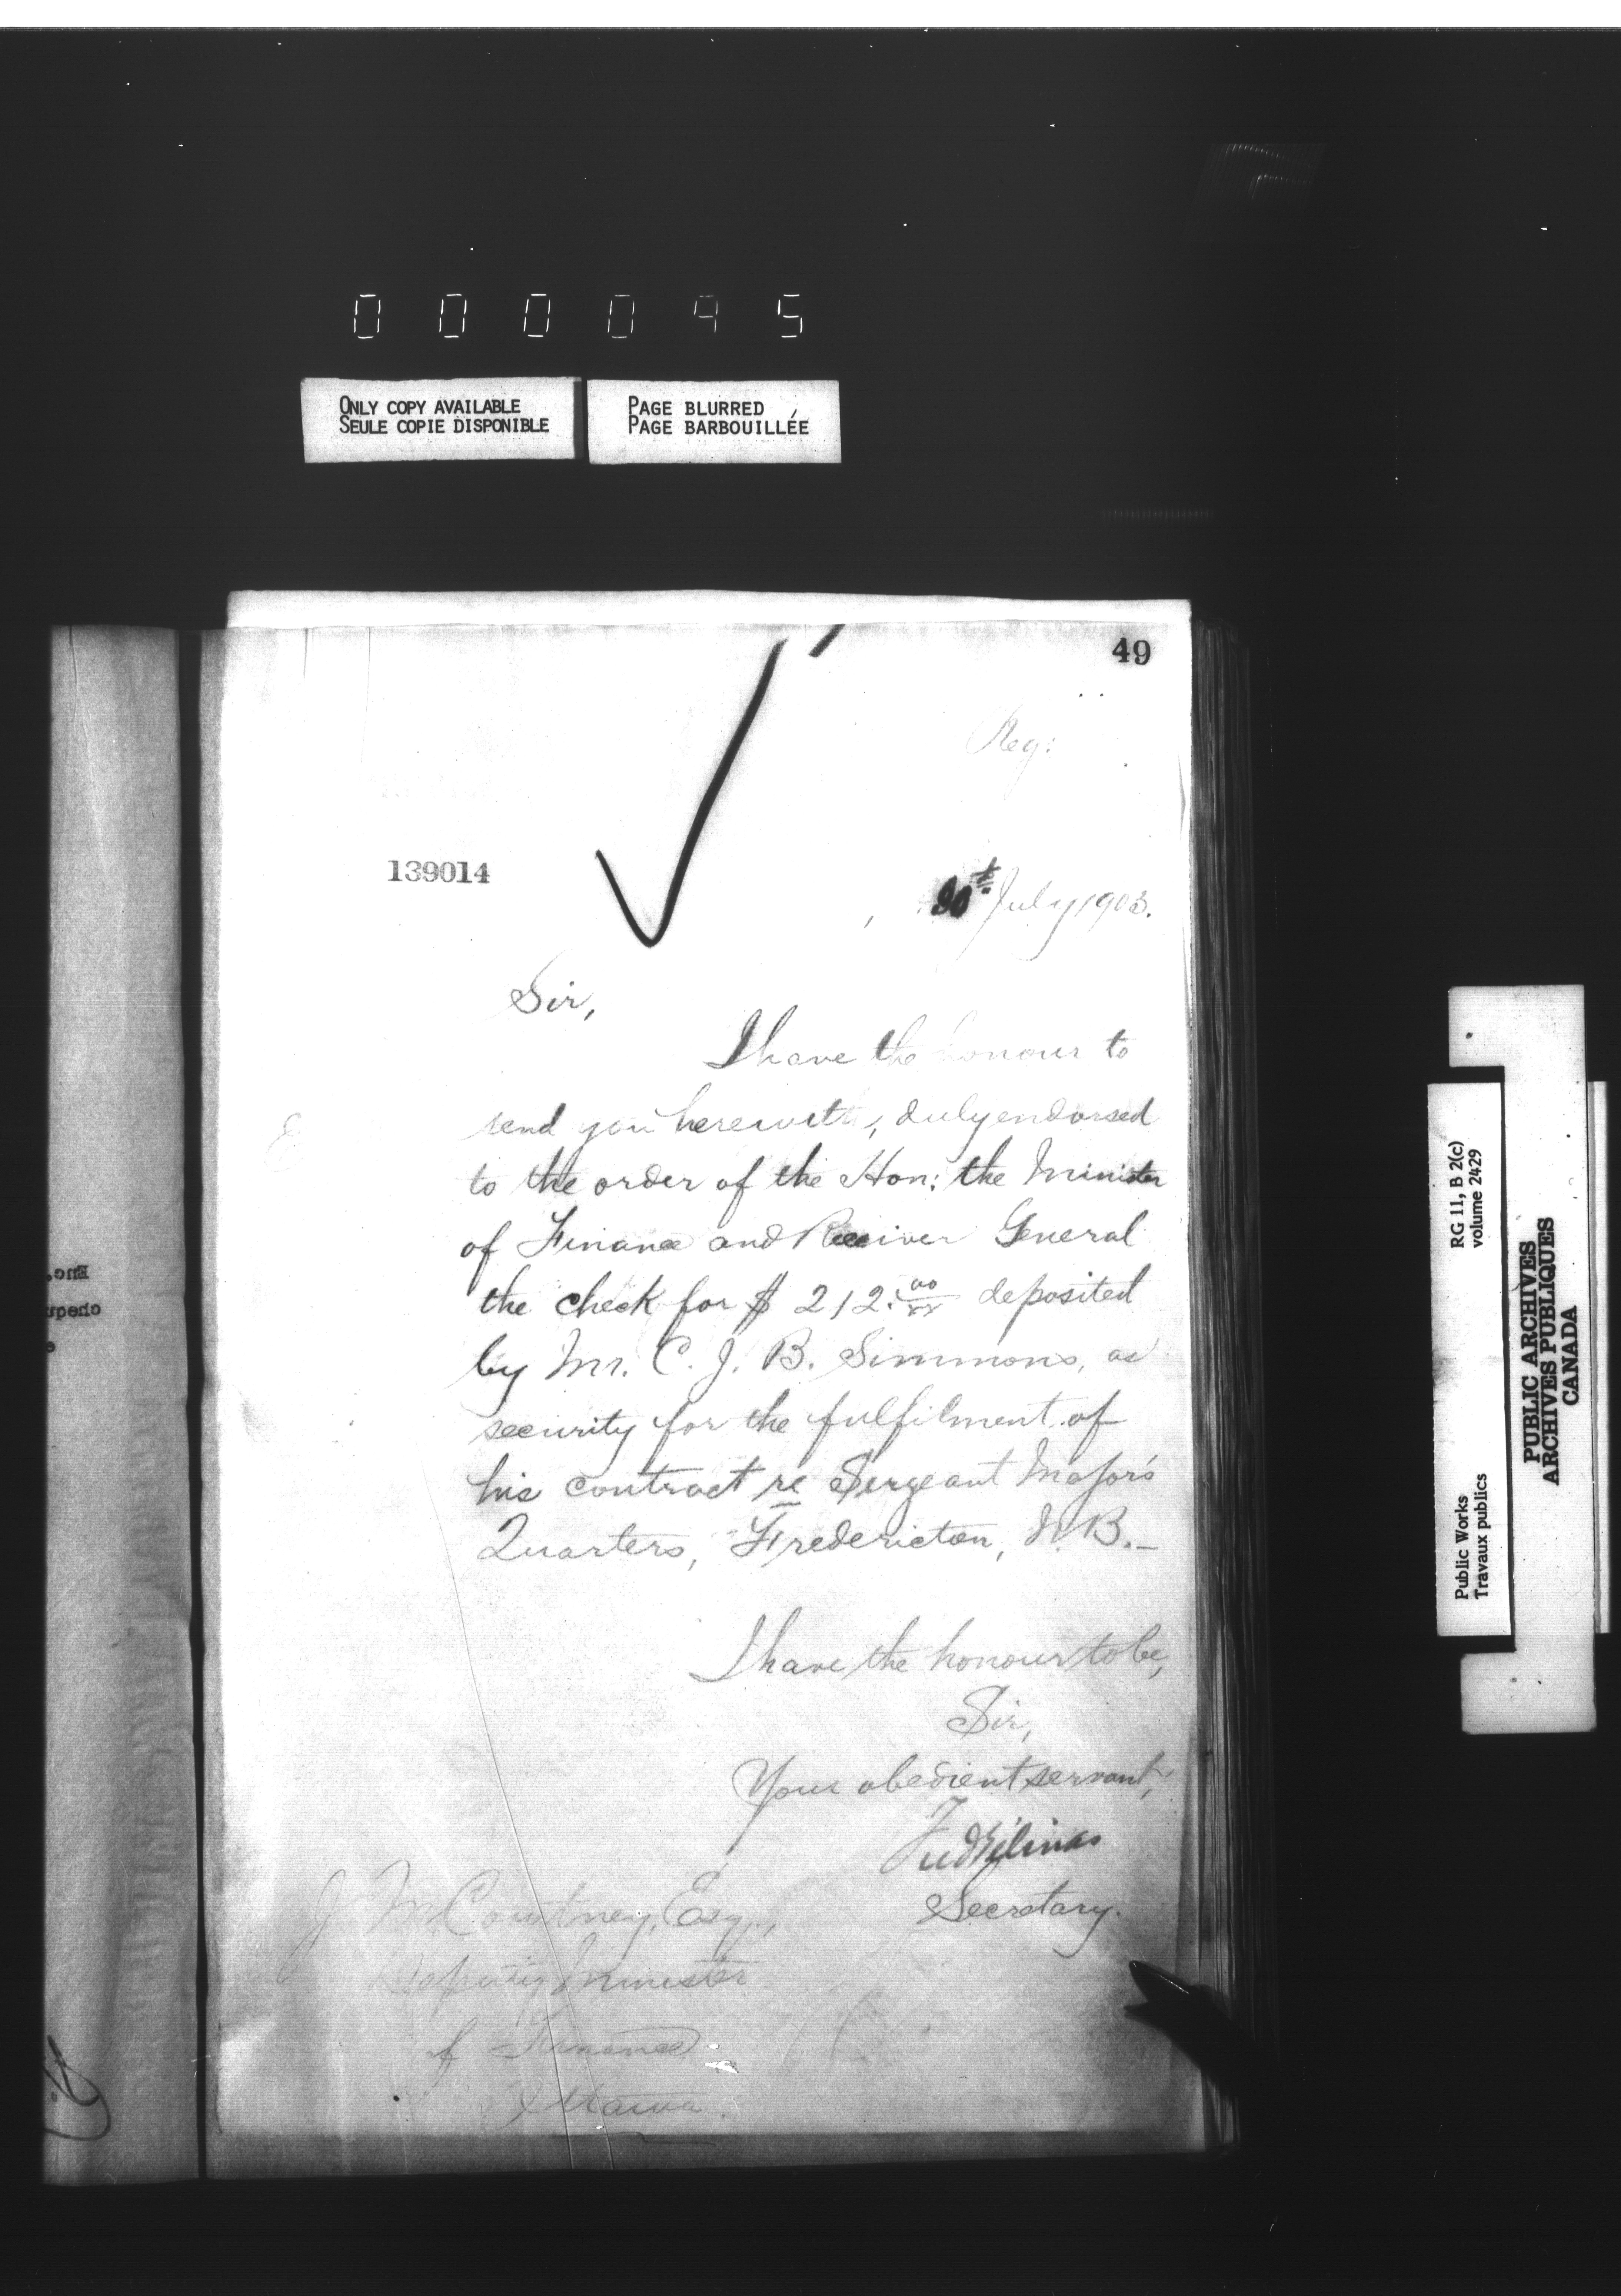 000095
ONLY COPY AVAILABLE
SEULE COPIE DISPONIBLE
PAGE BLURRED
PAGE BARBOUILLÉE
49
Reg:
139014
30th July 1903.
Sir,
I have the honour to
send you herewith, duly endorsed
to the order of the Hon: the Minister
of Finance and Receiver General
the check for $ 212.00/xx deposited
by Mr. C. J. B. Simmons, as
security for the fulfilment of
his contract re Sergeant Major's
Quarters, Fredericton, N.B.–
I have the honour to be,
Sir,
Your obedient servant,
Fred Gélinas
Secretary.
J. M. Courtney, Esq.,
Deputy Minister
of Finance
Ottawa.
Enc.
RG 11, B 2(c)
volume 2429
Public Works
Travaux publics
PUBLIC ARCHIVES
ARCHIVES PUBLIQUES
CANADA